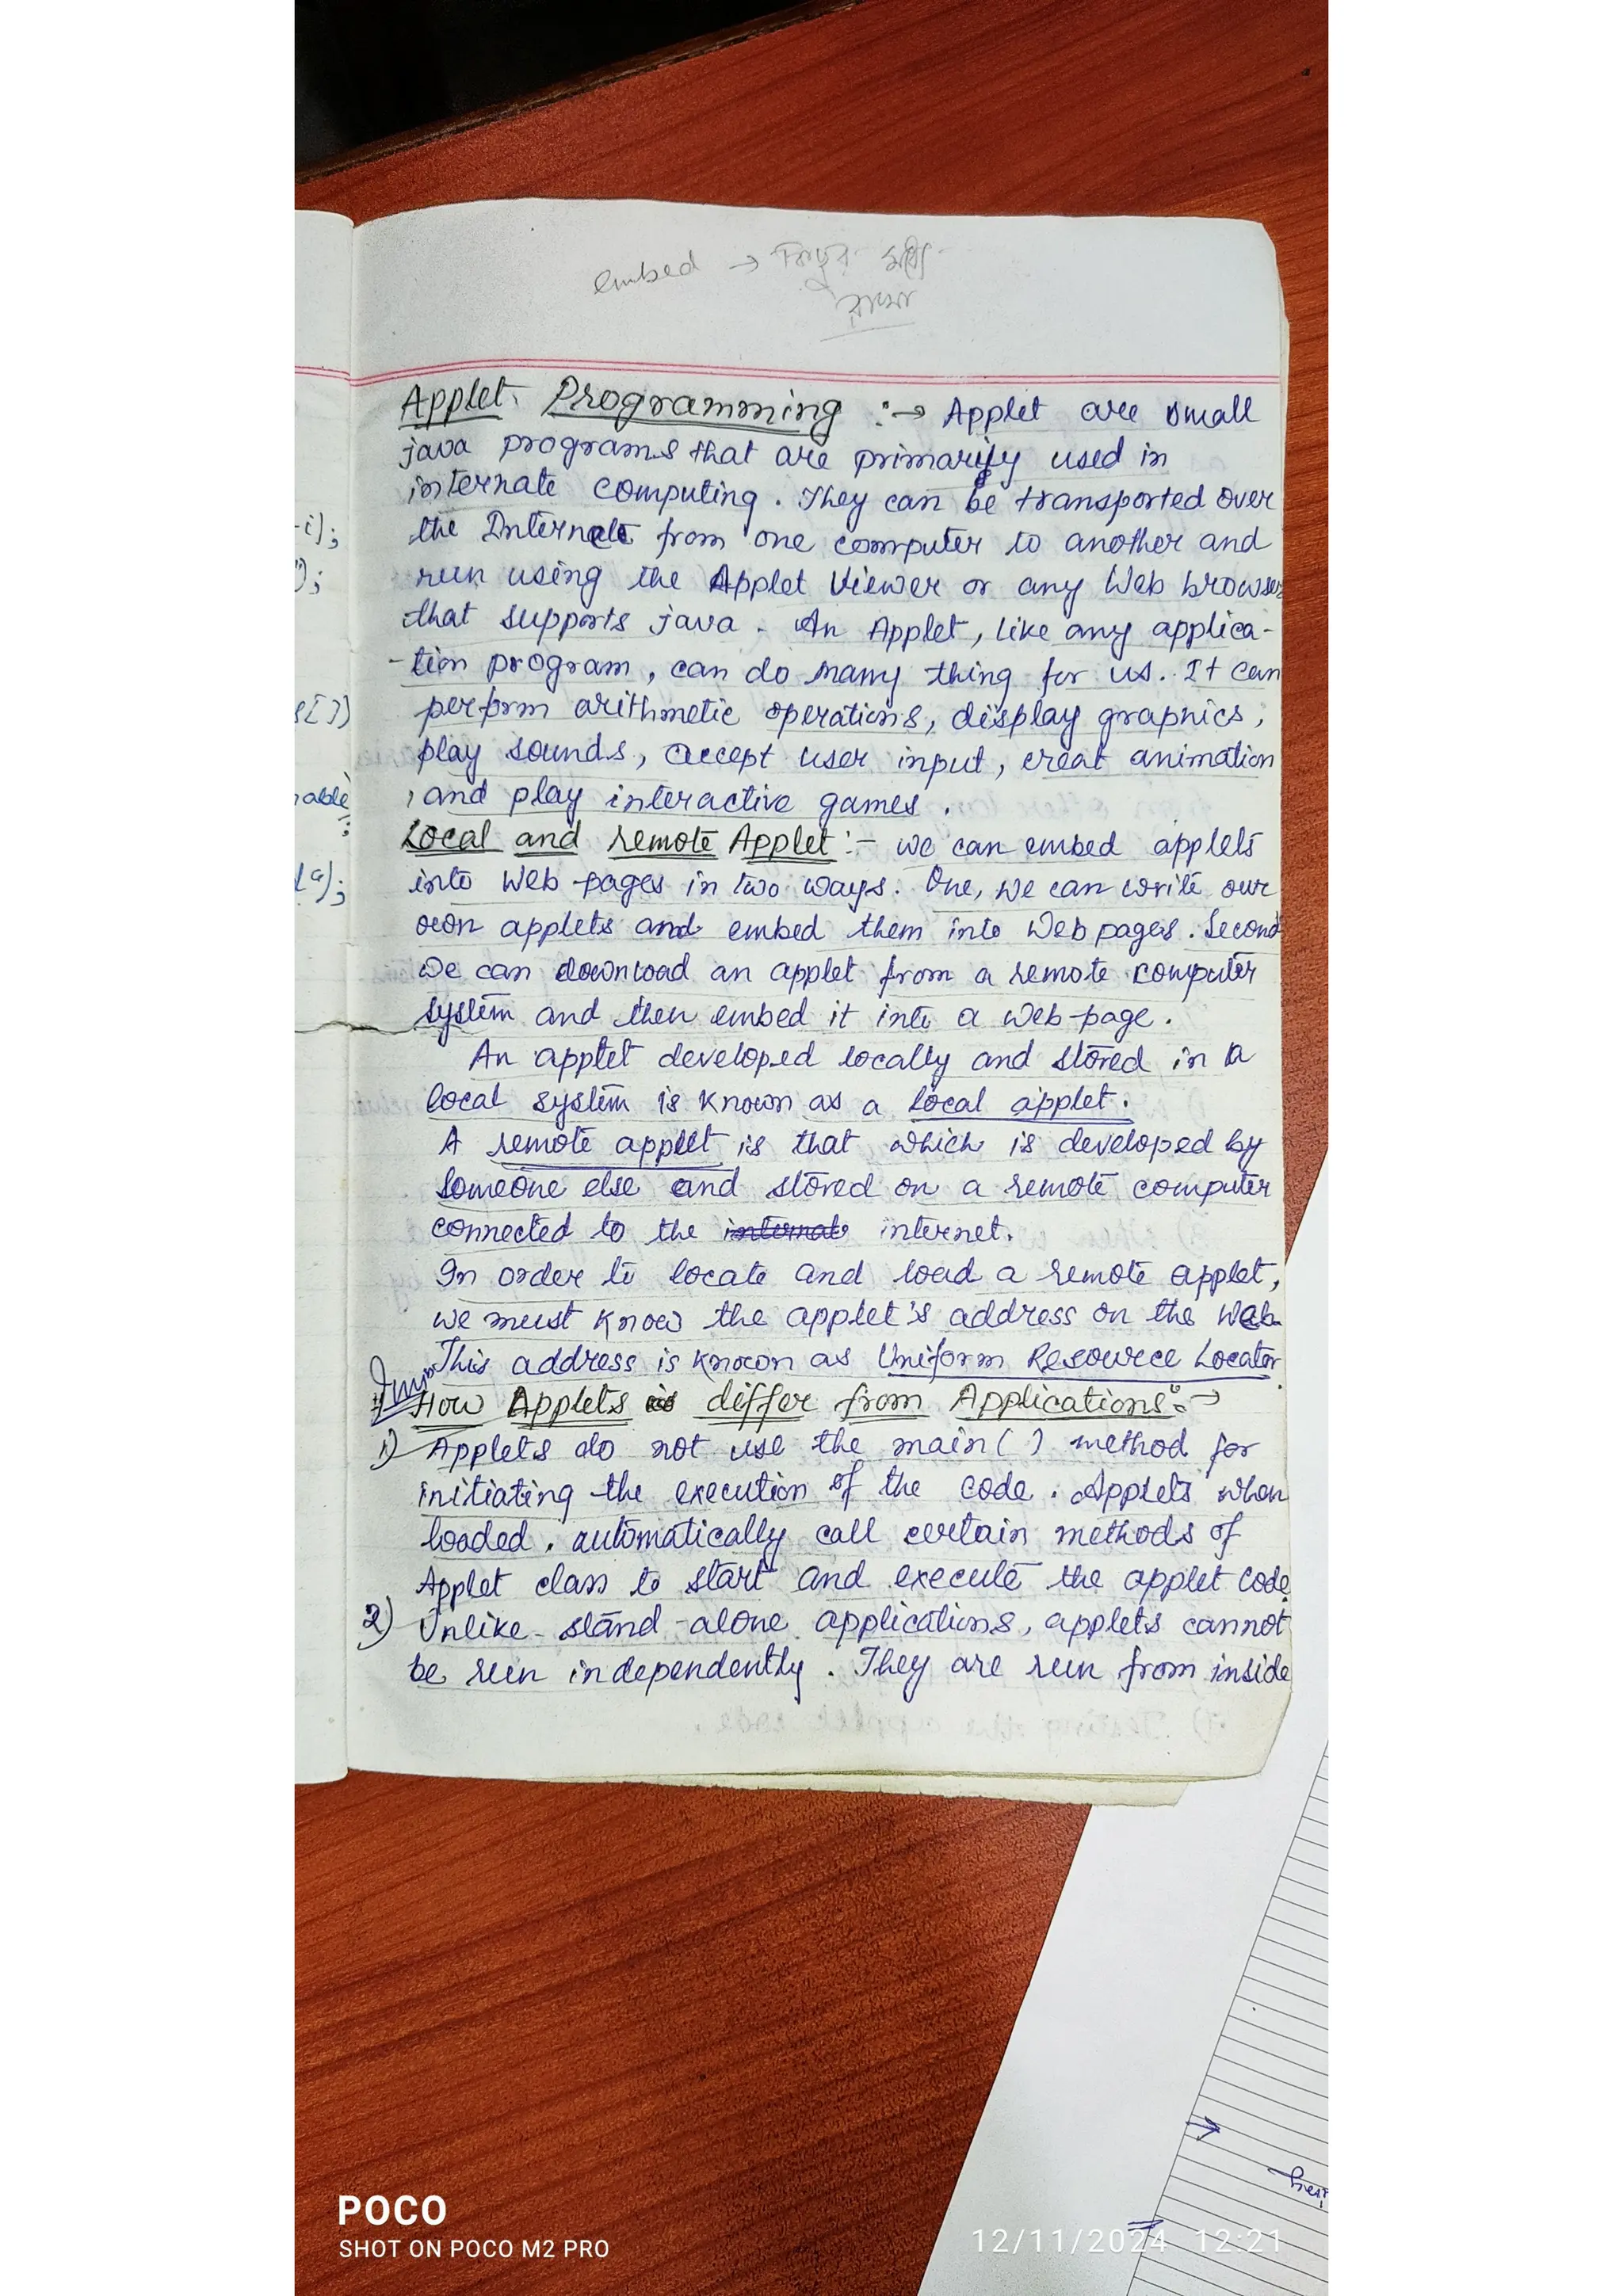 embed → কিছুর মধ্যে
রাখা
Applet Programming :→ Applet are small
java programs that are primarify used in
internate computing. They can be transported over
the Internet from one computer to another and
run using the Applet Viewer or any Web browser
that supports java. An Applet, like any applica-
-tion program, can do many thing for us. It can
perform arithmetic operations, display graphics,
play sounds, accept user input, creat animation
, and play interactive games.
Local and remote Applet :- we can embed applets
into Web pages in two ways. One, we can write our
own applets and embed them into Web pages. Second
We can download an applet from a remote computer
system and then embed it into a Web-page.
An applet developed locally and stored in a
local system is known as a local applet.
A remote applet is that which is developed by
someone else and stored on a remote computer
connected to the internate internet.
In order to locate and load a remote applet,
we must know the applet's address on the Web
This address is known as Uniform Resource Locator
Imp
How Applets is differ from Applications :→
1) Applets do not use the main( ) method for
initiating the execution of the code. Applets when
loaded, automatically call certain methods of
Applet class to start and execute the applet code.
2) Unlike stand-alone applications, applets cannot
be run independently. They are run from inside
-i);
");
s[])
nable
;
(a);
POCO
SHOT ON POCO M2 PRO
12/11/2024 12:21